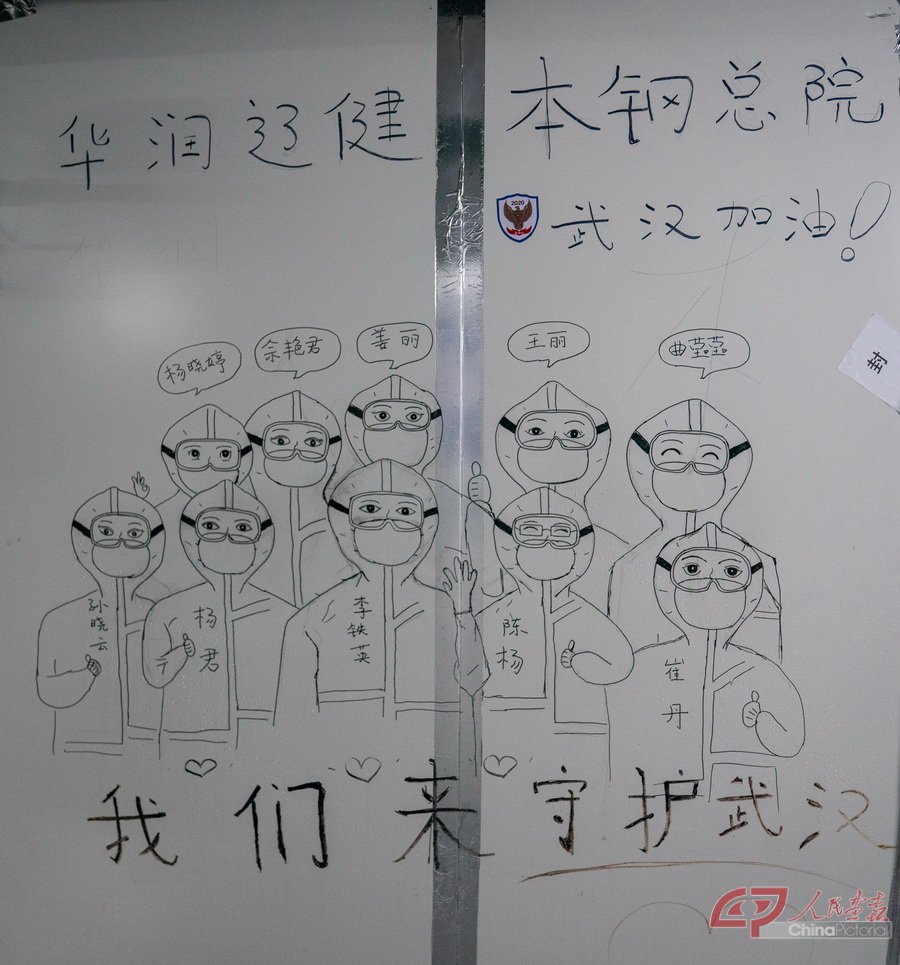 华润辽健 本钢总院
2020
武汉加油!
杨晓婷
佘艳君
姜丽
王丽
曲莹莹
封
孙晓云
杨君
李铁英
陈杨
崔丹
我们来守护武汉
人民画报
ChinaPictorial